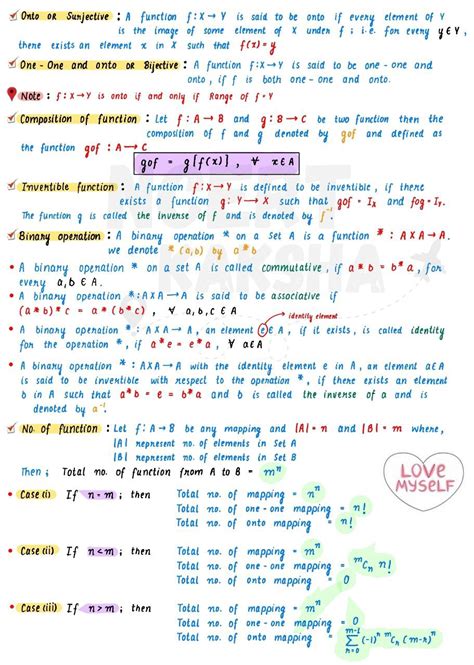 Onto or Surjective : A function f : X → Y is said to be onto if every element of Y
is the image of some element of X under f ; i.e. for every y ∈ Y ,
there exists an element x in X such that f(x) = y
One-One and onto or Bijective : A function f : X → Y is said to be one-one and
onto , if f is both one-one and onto.
Note : f : X → Y is onto if and only if Range of f = Y
Composition of function : Let f : A → B and g : B → C be two function then the
composition of f and g denoted by gof and defined as
the function gof : A → C
gof = g[f(x)] , ∀ x ∈ A
Invertible function : A function f : X → Y is defined to be invertible , if there
exists a function g : Y → X such that gof = Ix and fog = Iy.
The function g is called the inverse of f and is denoted by f⁻¹
Binary operation : A binary operation * on a set A is a function * : A X A → A.
we denote * (a,b) by a * b
• A binary operation * on a set A is called commutative , if a * b = b * a , for
every a, b ∈ A.
• A binary operation * : A X A → A is said to be associative if
(a * b) * c = a * (b * c) , ∀ a, b, c ∈ A
identity element
• A binary operation * : A X A → A , an element e ∈ A , if it exists , is called identity
for the operation * , if a * e = e * a , ∀ a ∈ A
• A binary operation * : A X A → A with the identity element e in A, an element a ∈ A
is said to be invertible with respect to the operation * , if there exists an element
b in A such that a * b = e = b * a and b is called the inverse of a and is
denoted by a⁻¹
No. of function : Let f : A → B be any mapping and |A| = n and |B| = m where,
|A| represent no. of elements in Set A
|B| represent no. of elements in Set B
Then ; Total no. of function from A to B = mⁿ
LOVE
MYSELF
• Case (i) If n = m ; then Total no. of mapping = nⁿ
Total no. of one-one mapping = n!
Total no. of onto mapping = n!
• Case (ii) If n < m ; then Total no. of mapping = mⁿ
Total no. of one-one mapping = ᵐCₙ n!
Total no. of onto mapping = 0
• Case (iii) If n > m ; then Total no. of mapping = mⁿ
Total no. of one-one mapping = 0
Total no. of onto mapping = m-1 Σ r=0 (-1)ʳ ᵐCᵣ (m-r)ⁿ